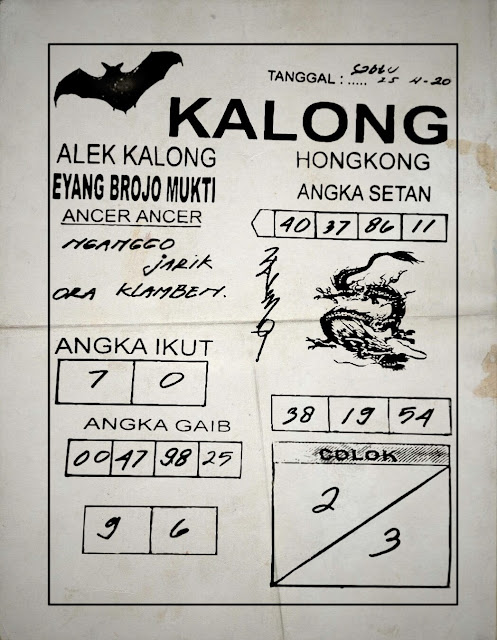 TANGGAL : ..... Sabtu
25 4-20
KALONG
ALEK KALONG
EYANG BROJO MUKTI
ANCER ANCER
NGANGGO
JARIK
ORA KLAMBEN.
HONGKONG
ANGKA SETAN
40 37 86 11
ANGKA IKUT
7 0
ANGKA GAIB
00 47 98 25
9 6
38 19 54
COLOK
2
3